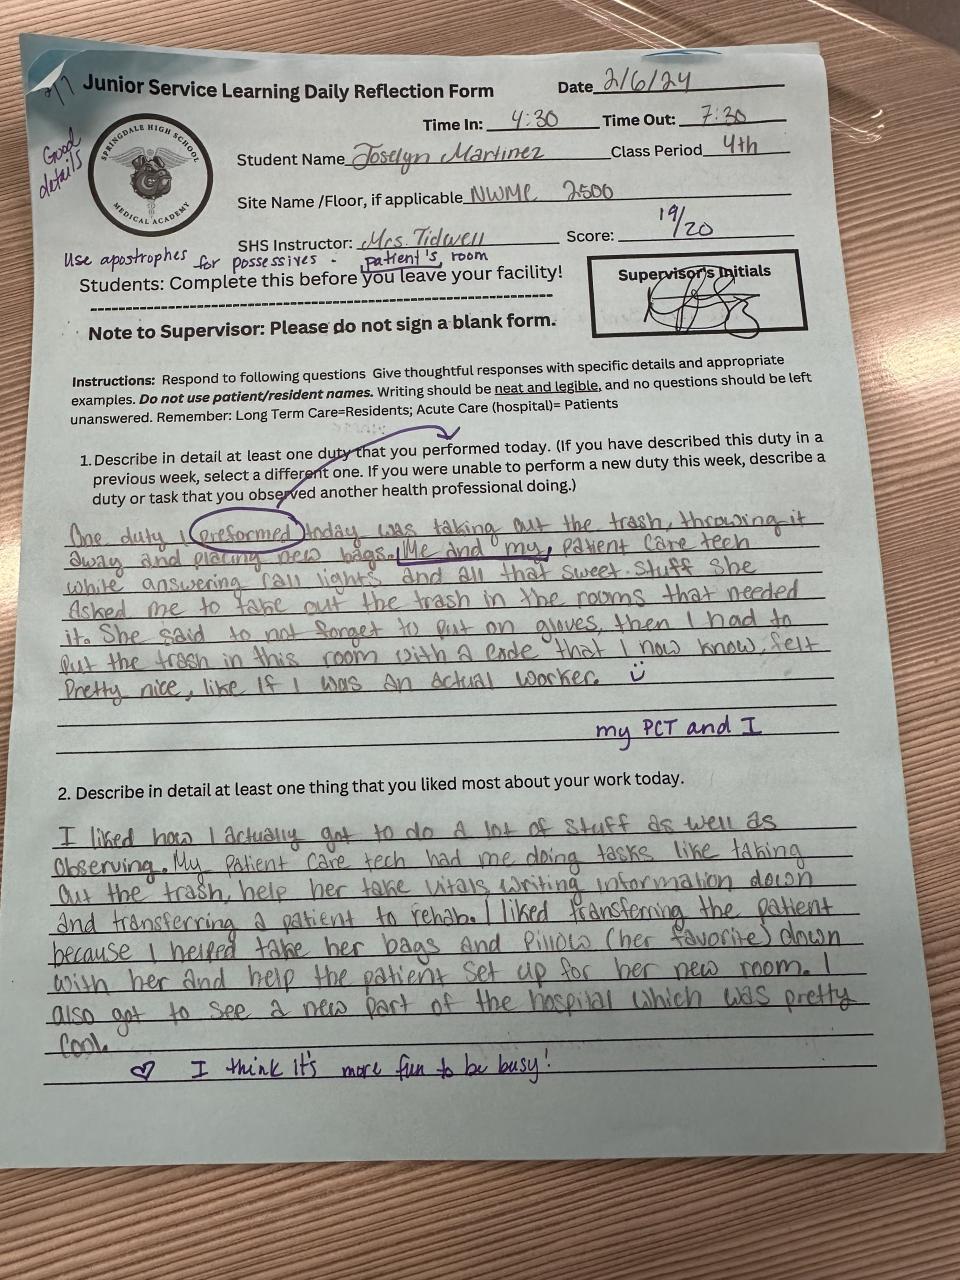 Junior Service Learning Daily Reflection Form
Date 2/6/24
Good details
Time In: 4:30 Time Out: 7:30
SPRINGDALE HIGH SCHOOL
MEDICAL ACADEMY
Student Name Joselyn Martinez Class Period 4th
Site Name /Floor, if applicable NWMC 2500
SHS Instructor: Mrs. Tidwell Score: 19/20
Use apostrophes for possessives - patient's room
Students: Complete this before you leave your facility!
Supervisor's Initials
Note to Supervisor: Please do not sign a blank form.
Instructions: Respond to following questions Give thoughtful responses with specific details and appropriate
examples. Do not use patient/resident names. Writing should be neat and legible, and no questions should be left
unanswered. Remember: Long Term Care=Residents; Acute Care (hospital)= Patients
1. Describe in detail at least one duty that you performed today. (If you have described this duty in a
previous week, select a different one. If you were unable to perform a new duty this week, describe a
duty or task that you observed another health professional doing.)
One duty I preformed today was taking out the trash, throwing it
away and placing new bags. Me and my patient care tech
while answering call lights and all that sweet stuff she
Asked me to take out the trash in the rooms that needed
it. She said to not forget to put on gloves, then I had to
put the trash in this room with a code that I now know, felt
Pretty nice, like if I was an actual worker.
my PCT and I
2. Describe in detail at least one thing that you liked most about your work today.
I liked how I actually got to do a lot of stuff as well as
observing. My patient care tech had me doing tasks like taking
out the trash, help her take vitals, writing information down
and transferring a patient to rehab. I liked transferring the patient
because I helped take her bags and pillow (her favorite) down
with her and help the patient set up for her new room. I
also got to see a new part of the hospital which was pretty
cool.
♡ I think it's more fun to be busy!